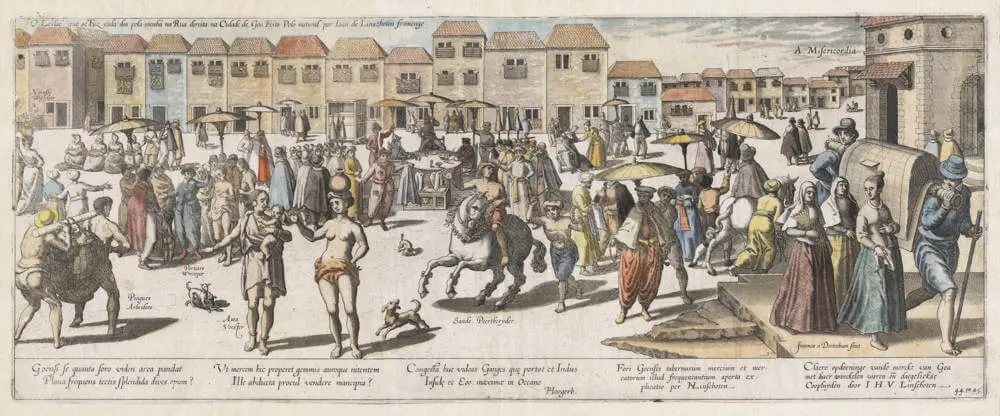 O Leilao que se Faz cada dia pola menhã na Rua direita na Cidade de Goa Feito Polo natural por Ioan de Linschoten framengo
A Misericordia
Pingues
Arbediers
Ama
Voester
Sande Peertberyder
Goensi se quanta foro videri area pandat
Plana frequens tectis splendida dives opum?
Ut mercem hic properet gemmis auroque nitentem
Ille abducta procul vendere mancipia?
Congesta huc videas Ganges que portat et Indus
Insulae et Eoo maximae in Oceano
Ploegerh.
Fori Goensis tabernarum mercium et mer-
catorum illud frequentantium aperta ex-
plicatio per Linschoten
Claere opdoeninge vande merckt van Goa
met haer winckelen waren en daegelicksse
Cooplyden door I H V Linschoten